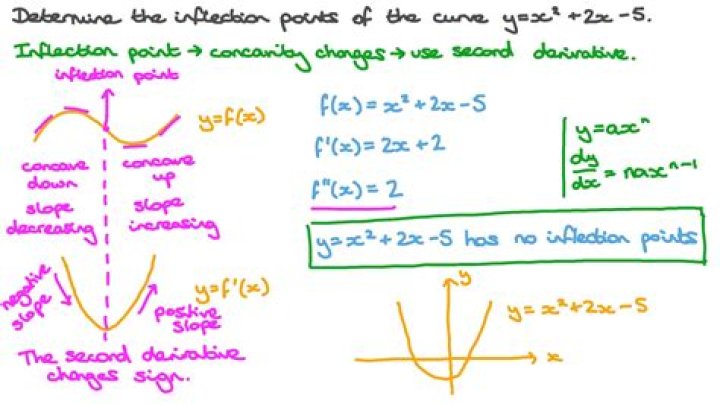 Determine the inflection points of the curve y=x² +2x -5.
Inflection point → concavity changes → use second derivative.
inflection point
y=f(x)
concave down
concave up
slope decreasing
slope increasing
negative slope
positive slope
y=f'(x)
The second derivative
changes sign.
f(x) = x² + 2x - 5
f'(x) = 2x + 2
f"(x) = 2
y=axⁿ
dy/dx = naxⁿ⁻¹
y=x² + 2x - 5 has no inflection points
y
y = x² + 2x - 5
x